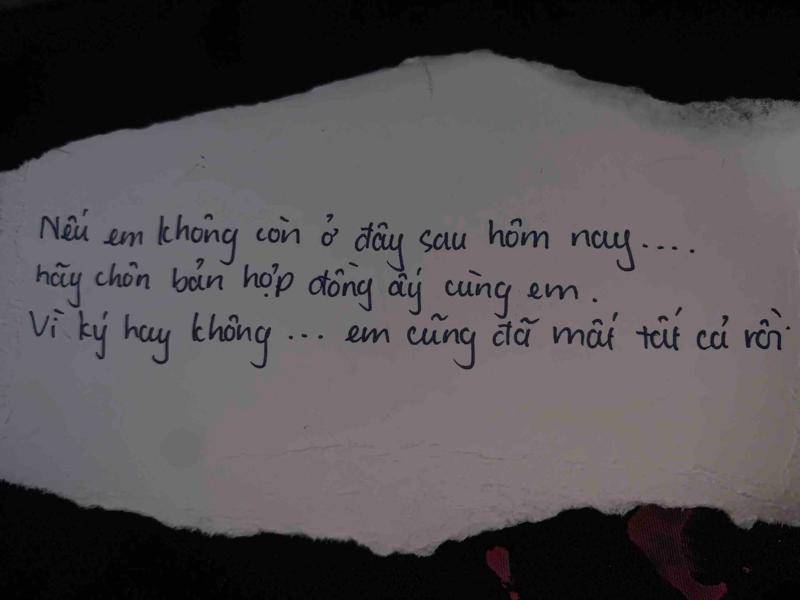 Nếu em không còn ở đây sau hôm nay....
hãy chôn bản hợp đồng ấy cùng em.
Vì ký hay không... em cũng đã mất tất cả rồi.